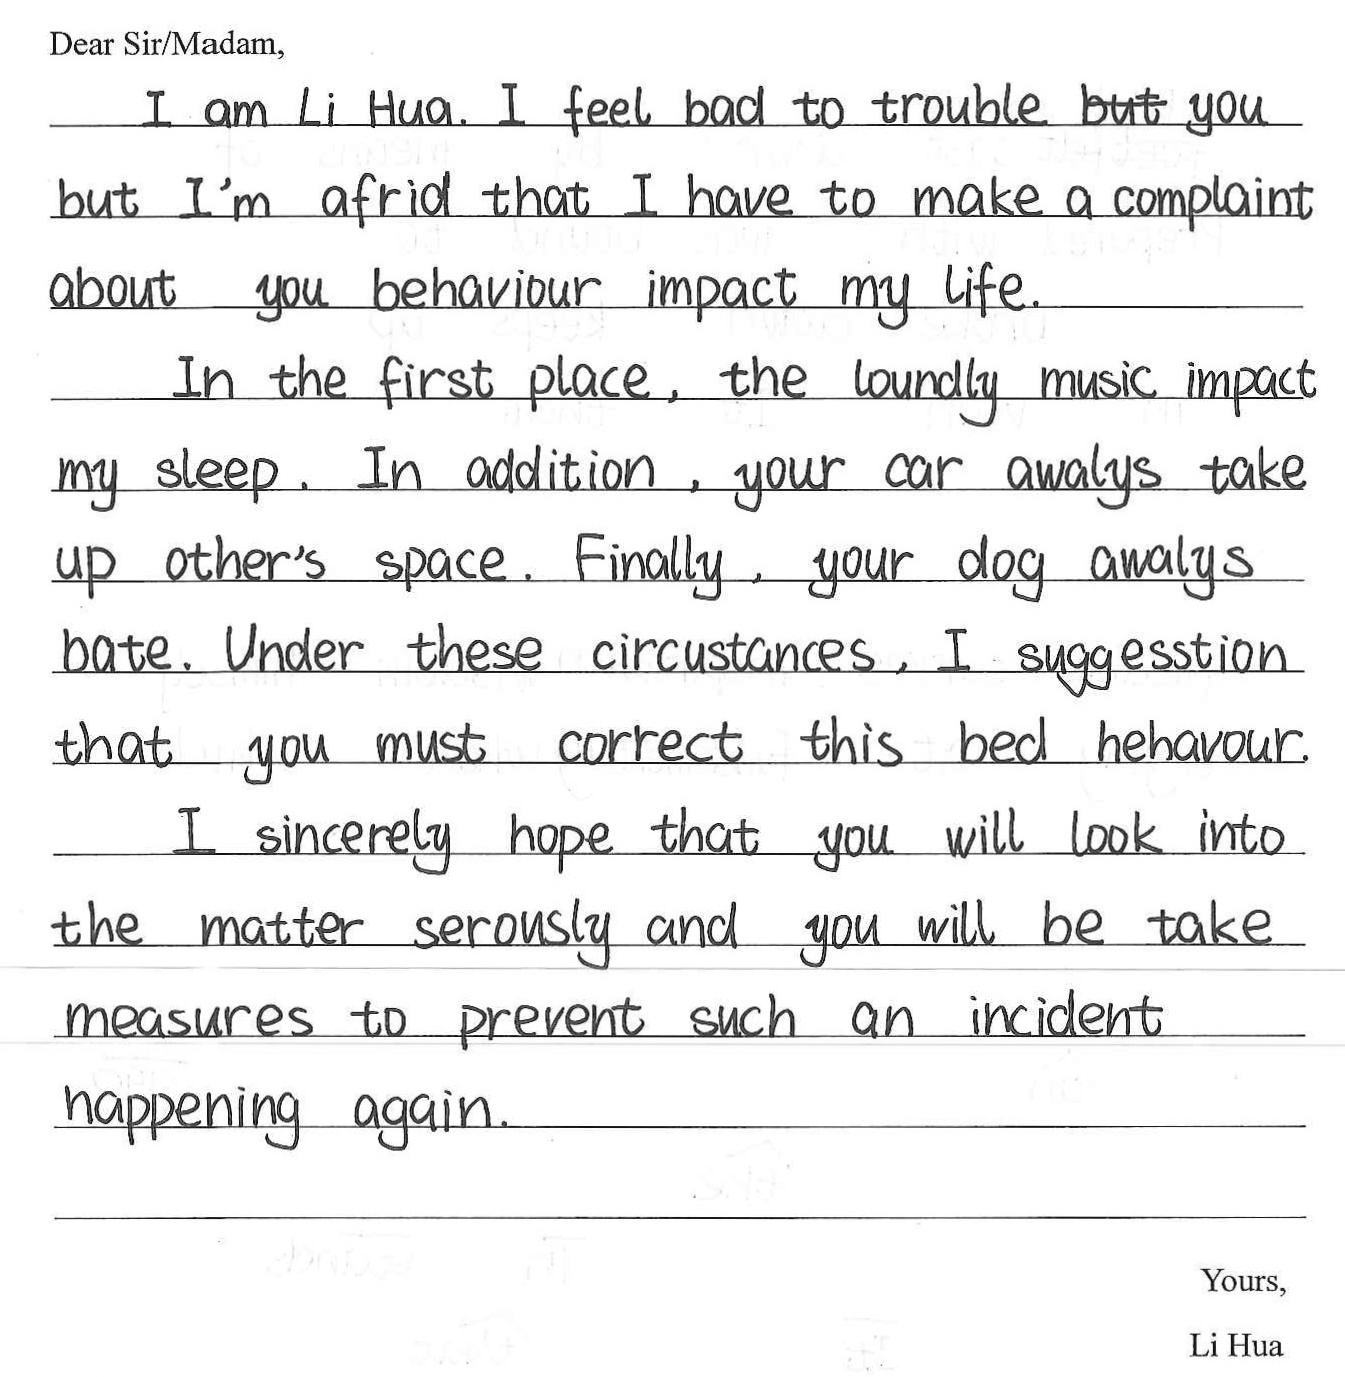 Dear Sir/Madam,
I am Li Hua. I feel bad to trouble but you
but I'm afrid that I have to make a complaint
about you behaviour impact my life.
In the first place, the loundly music impact
my sleep. In addition, your car awalys take
up other's space. Finally, your dog awalys
bate. Under these circustances, I suggesstion
that you must correct this bed hehavour.
I sincerely hope that you will look into
the matter serously and you will be take
measures to prevent such an incident
happening again.
Yours,
Li Hua